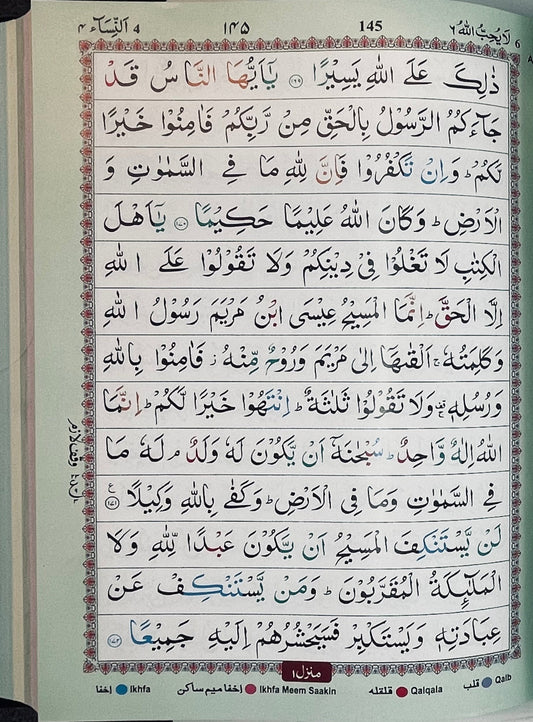 4 اَلنِّسَآء ۴ ۱۴۵ 145 لَا يُحِبُّ اللهُ ۶ 6
ذٰلِكَ عَلَى اللهِ يَسِيْرًا ﴿۱۶۹﴾ يٰٓاَيُّهَا النَّاسُ قَدْ
جَآءَكُمُ الرَّسُوْلُ بِالْحَقِّ مِنْ رَّبِّكُمْ فَاٰمِنُوْا خَيْرًا
لَّكُمْ ؕ وَاِنْ تَكْفُرُوْا فَاِنَّ لِلّٰهِ مَا فِى السَّمٰوٰتِ وَ
الْاَرْضِ ؕ وَكَانَ اللهُ عَلِيْمًا حَكِيْمًا ﴿۱۷۰﴾ يٰٓاَهْلَ
الْكِتٰبِ لَا تَغْلُوْا فِىْ دِيْنِكُمْ وَلَا تَقُوْلُوْا عَلَى اللهِ
اِلَّا الْحَقَّ ؕ اِنَّمَا الْمَسِيْحُ عِيْسَى ابْنُ مَرْيَمَ رَسُوْلُ اللهِ
وَكَلِمَتُهٗ ۚ اَلْقٰىهَاۤ اِلٰى مَرْيَمَ وَرُوْحٌ مِّنْهُ ۫ فَاٰمِنُوْا بِاللهِ
وَرُسُلِهٖ ۚ وَلَا تَقُوْلُوْا ثَلٰثَةٌ ؕ اِنْتَهُوْا خَيْرًا لَّكُمْ ؕ اِنَّمَا
اللهُ اِلٰهٌ وَّاحِدٌ ؕ سُبْحٰنَهٗۤ اَنْ يَّكُوْنَ لَهٗ وَلَدٌ ۘ لَهٗ مَا
فِى السَّمٰوٰتِ وَمَا فِى الْاَرْضِ ؕ وَكَفٰى بِاللهِ وَكِيْلًا ﴿۱۷۱﴾ ع
لَنْ يَّسْتَنْكِفَ الْمَسِيْحُ اَنْ يَّكُوْنَ عَبْدًا لِّلّٰهِ وَلَا
الْمَلٰٓئِكَةُ الْمُقَرَّبُوْنَ ؕ وَمَنْ يَّسْتَنْكِفْ عَنْ
عِبَادَتِهٖ وَيَسْتَكْبِرْ فَسَيَحْشُرُهُمْ اِلَيْهِ جَمِيْعًا ﴿۱۷۲﴾
وقف لازم
منزل ۱
اخفا Ikhfa اخفا میم ساکن Ikhfa Meem Saakin قلقله Qalqala قلب Qalb